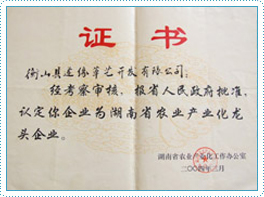 证书
衡山县逸绣草艺开发有限公司：
经考察审核，报省人民政府批准，
认定你企业为湖南省农业产业化龙
头企业。
湖南省农业产业化工作办公室
二〇〇四年三月